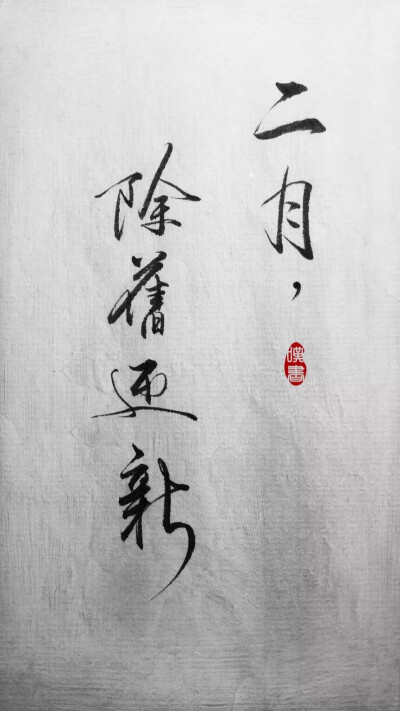 二月，
漢書
除舊迎新